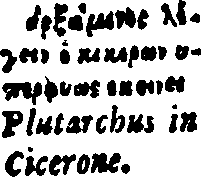 ἀρξάμενος λέ-
γειν ὁ κικέρων ὑ-
περφυῶς ἐκίνει
Plutarchus in
Cicerone.